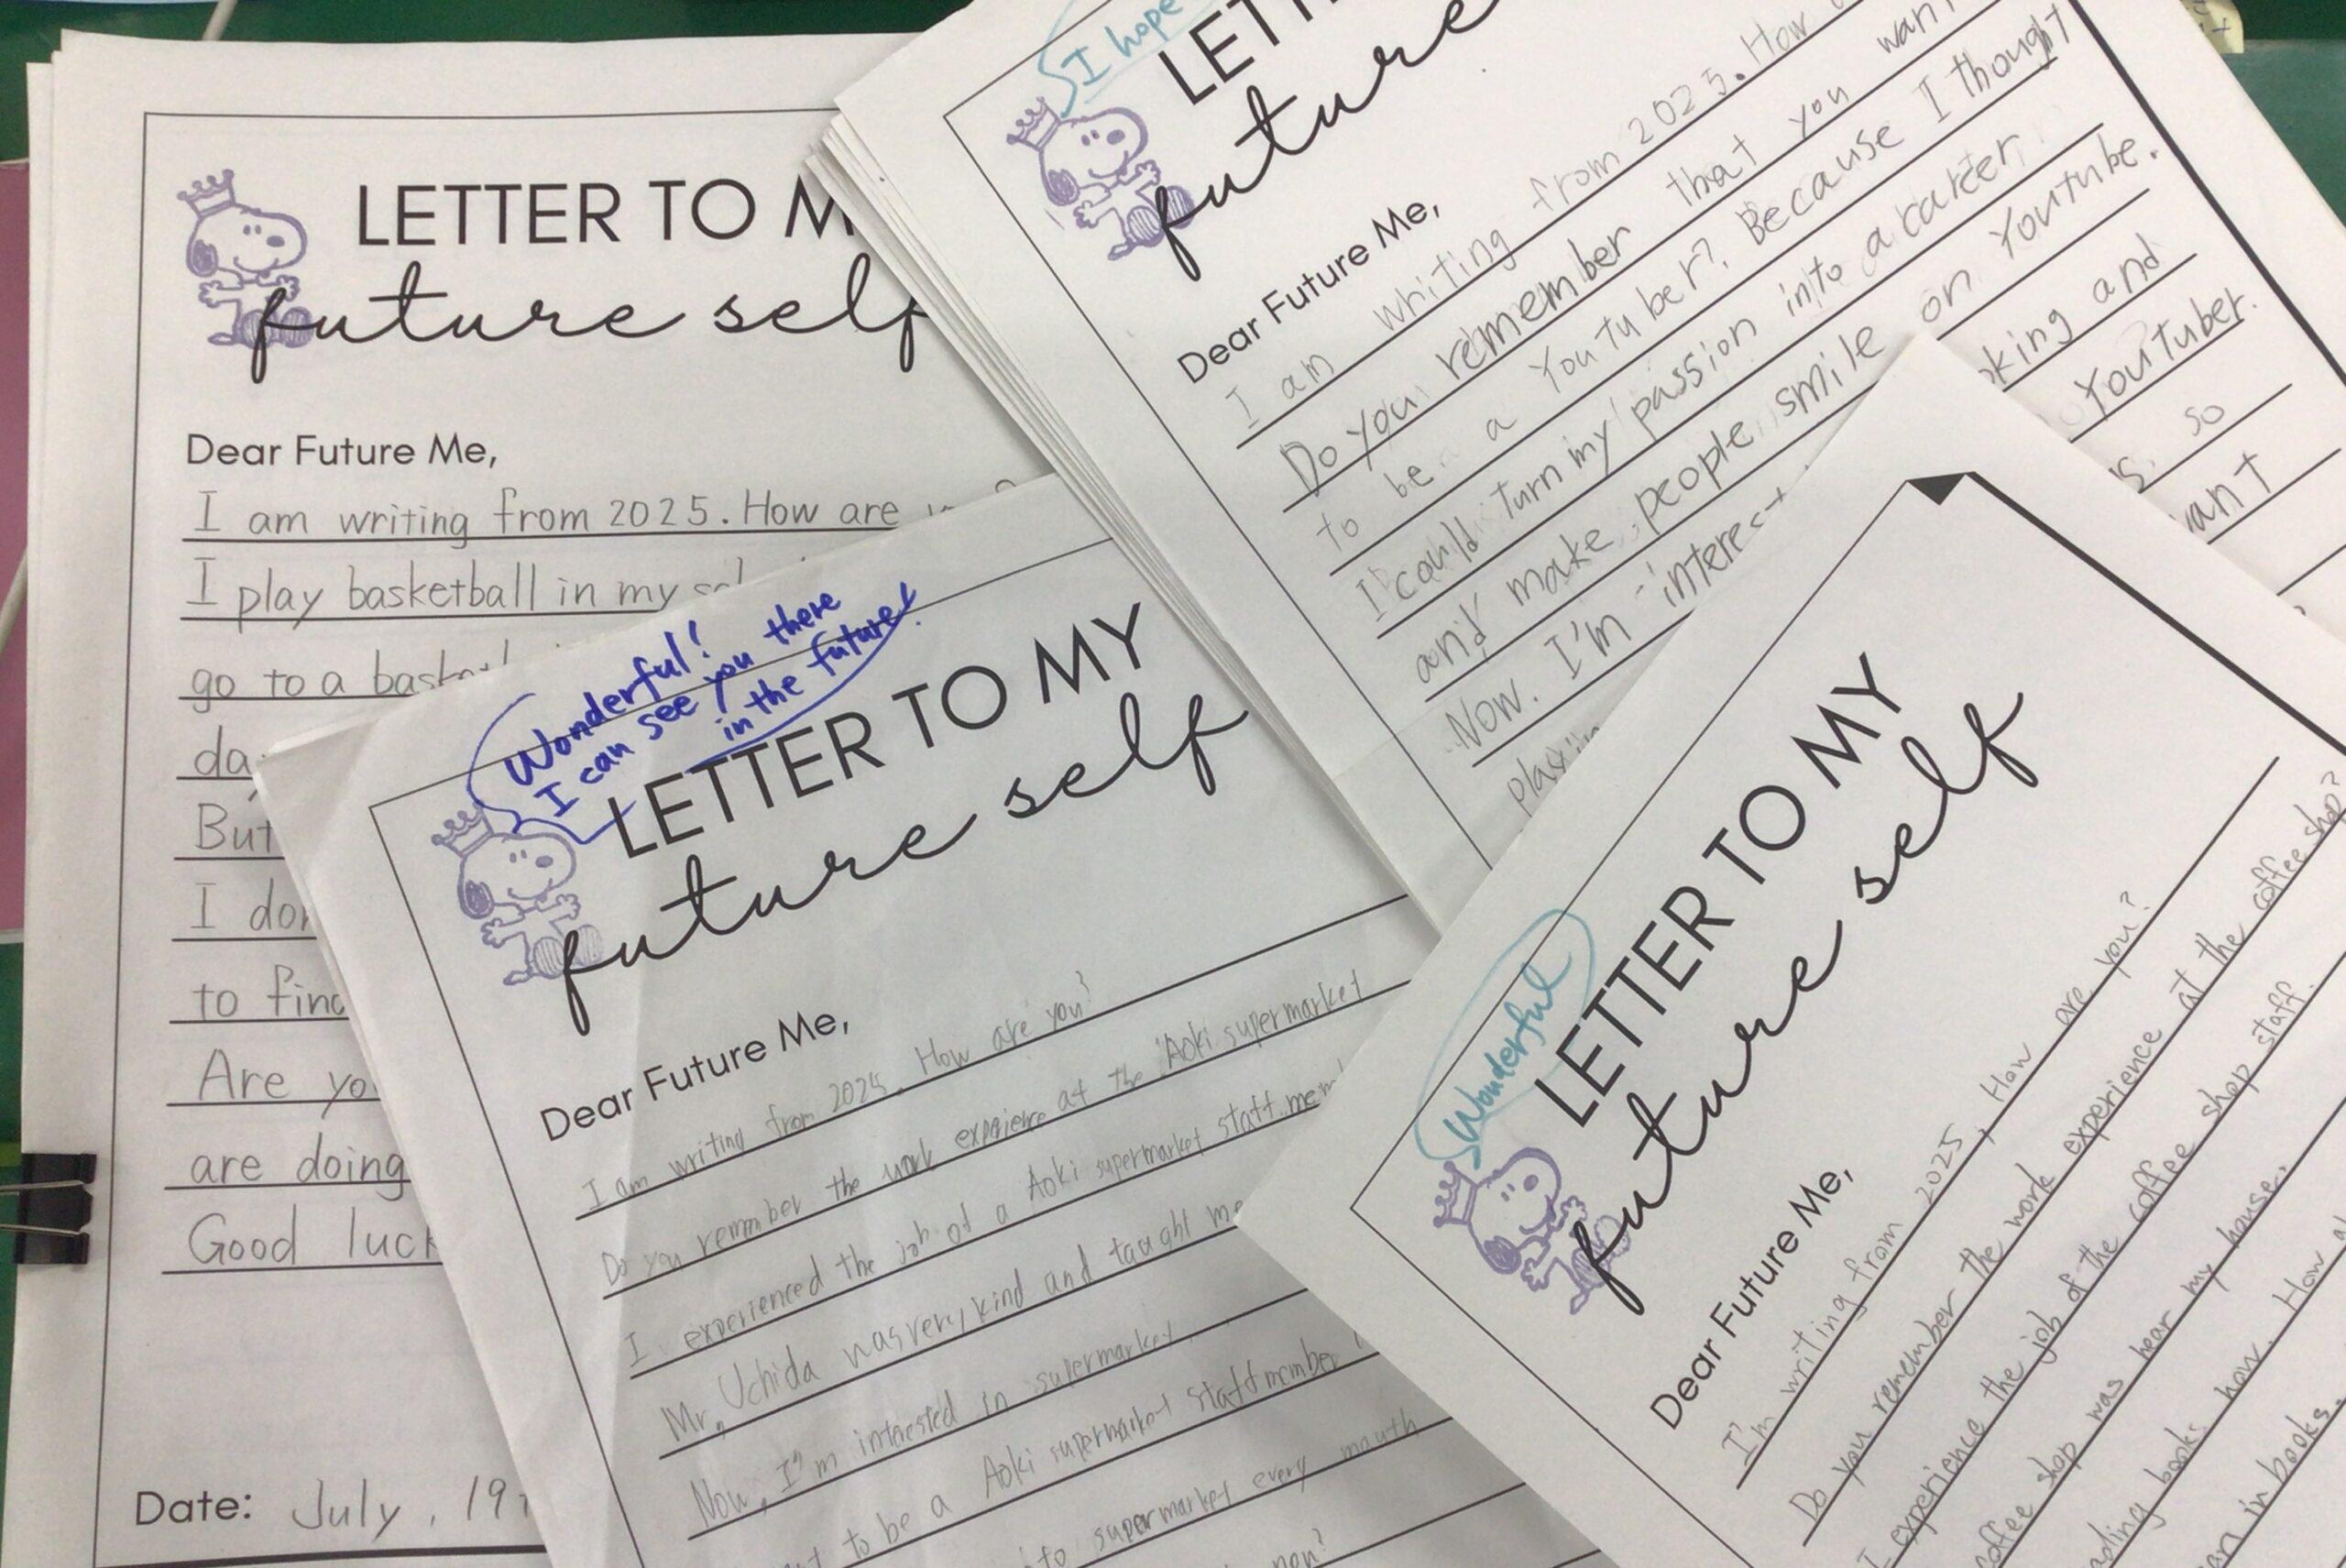 LETTER TO M
future self
Dear Future Me,
I am writing from 2025. How are
I play basketball in my
go to a
da
But
I don
to find
Are yo
are doing
Good luck
Date: July, 19
I hope
LETT
future
Dear Future Me,
I am writing from 2025. How
Do you remember that you want
to be a Youtuber? Because I thought
I could turn my passion into a career
and make people smile on Youtube.
Now. I'm interest
king and
Youtuber.
so
want
Wonderful!
I can see you there
in the future!
LETTER TO MY
future self
Dear Future Me,
I am writing from 2025. How are you?
Do you remember the work experience at the Aoki supermarket
I experienced the job of a Aoki supermarket staff mem
Mr, Uchida was very kind and taught me
Now, I'm interested in supermarket.
to be a Aoki supermarket staff member
to supermarket every mouth
now?
Wonderful
LETTER TO MY
future self
Dear Future Me,
I'm writing from 2025, How are you?
Do you remember the work experience at the coffee shop?
I experience the job of the coffee shop staff.
coffee shop was near my house.
ading books now. How a
in books.